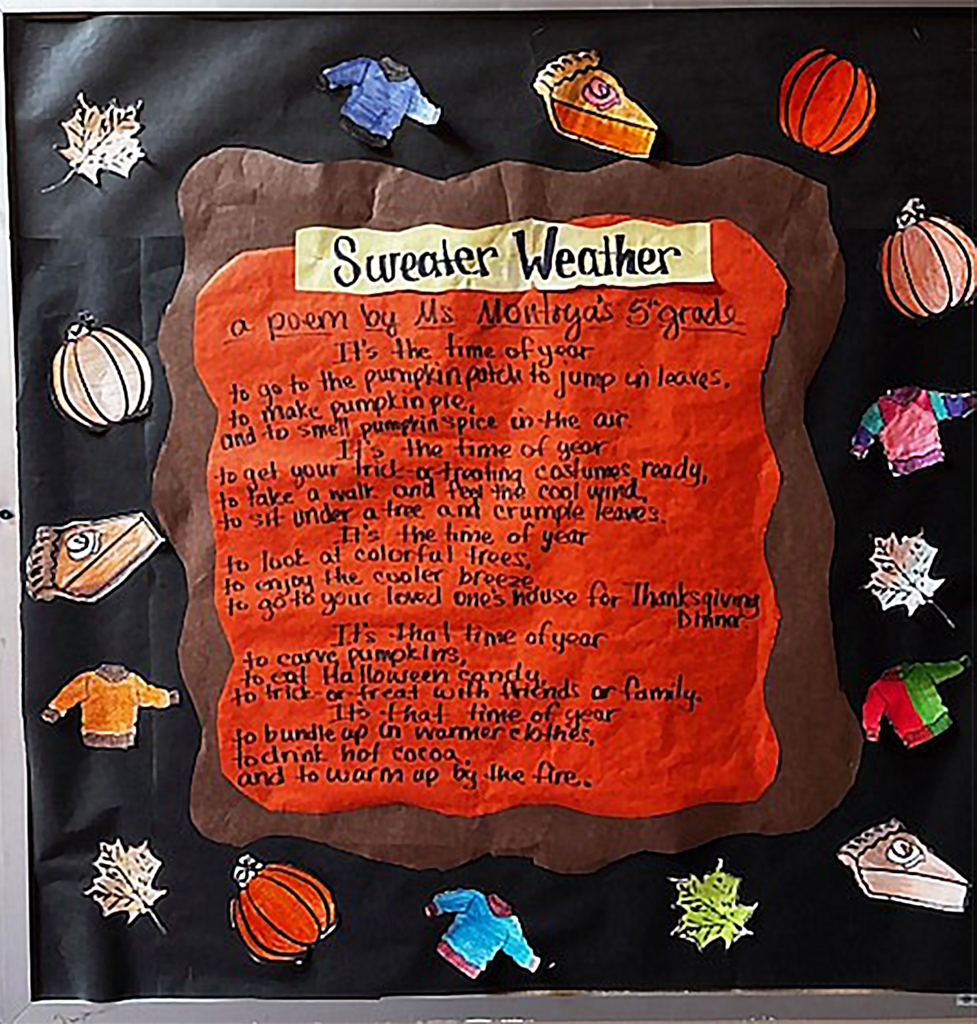 Sweater Weather
a poem by Ms Montoya's 5th grade
It's the time of year
to go to the pumpkin patch to jump in leaves,
to make pumpkin pie,
and to smell pumpkin spice in the air.
It's the time of year
to get your trick-or-treating costumes ready,
to take a walk and feel the cool wind,
to sit under a tree and crumple leaves.
It's the time of year
to look at colorful trees,
to enjoy the cooler breeze,
to go to your loved one's house for Thanksgiving
Dinner.
It's that time of year
to carve pumpkins,
to eat Halloween candy,
to trick-or-treat with friends or family.
It's that time of year
to bundle up in warmer clothes,
to drink hot cocoa,
and to warm up by the fire.